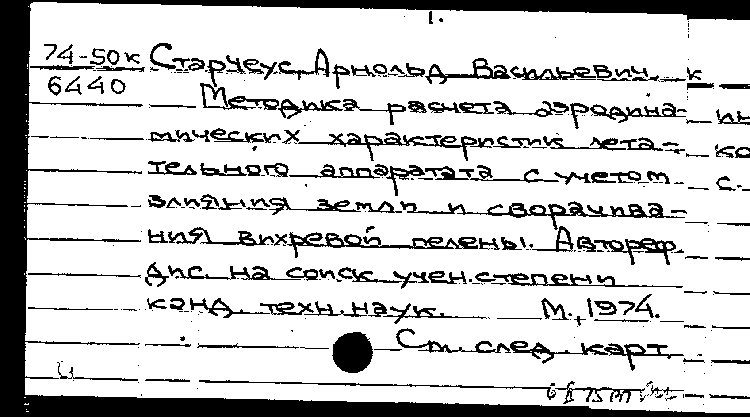 1.
74-50к Старчеус, Арнольд Васильевич. к
6440 Методика расчета аэродина- ин
мических характеристик лета- ко
тельного аппаратата с учетом с.
влияния земли и сворачива-
ния вихревой пелены. Автореф.
дис. на соиск. учен. степени
канд. техн. наук. М., 1974.
См. след. карт.